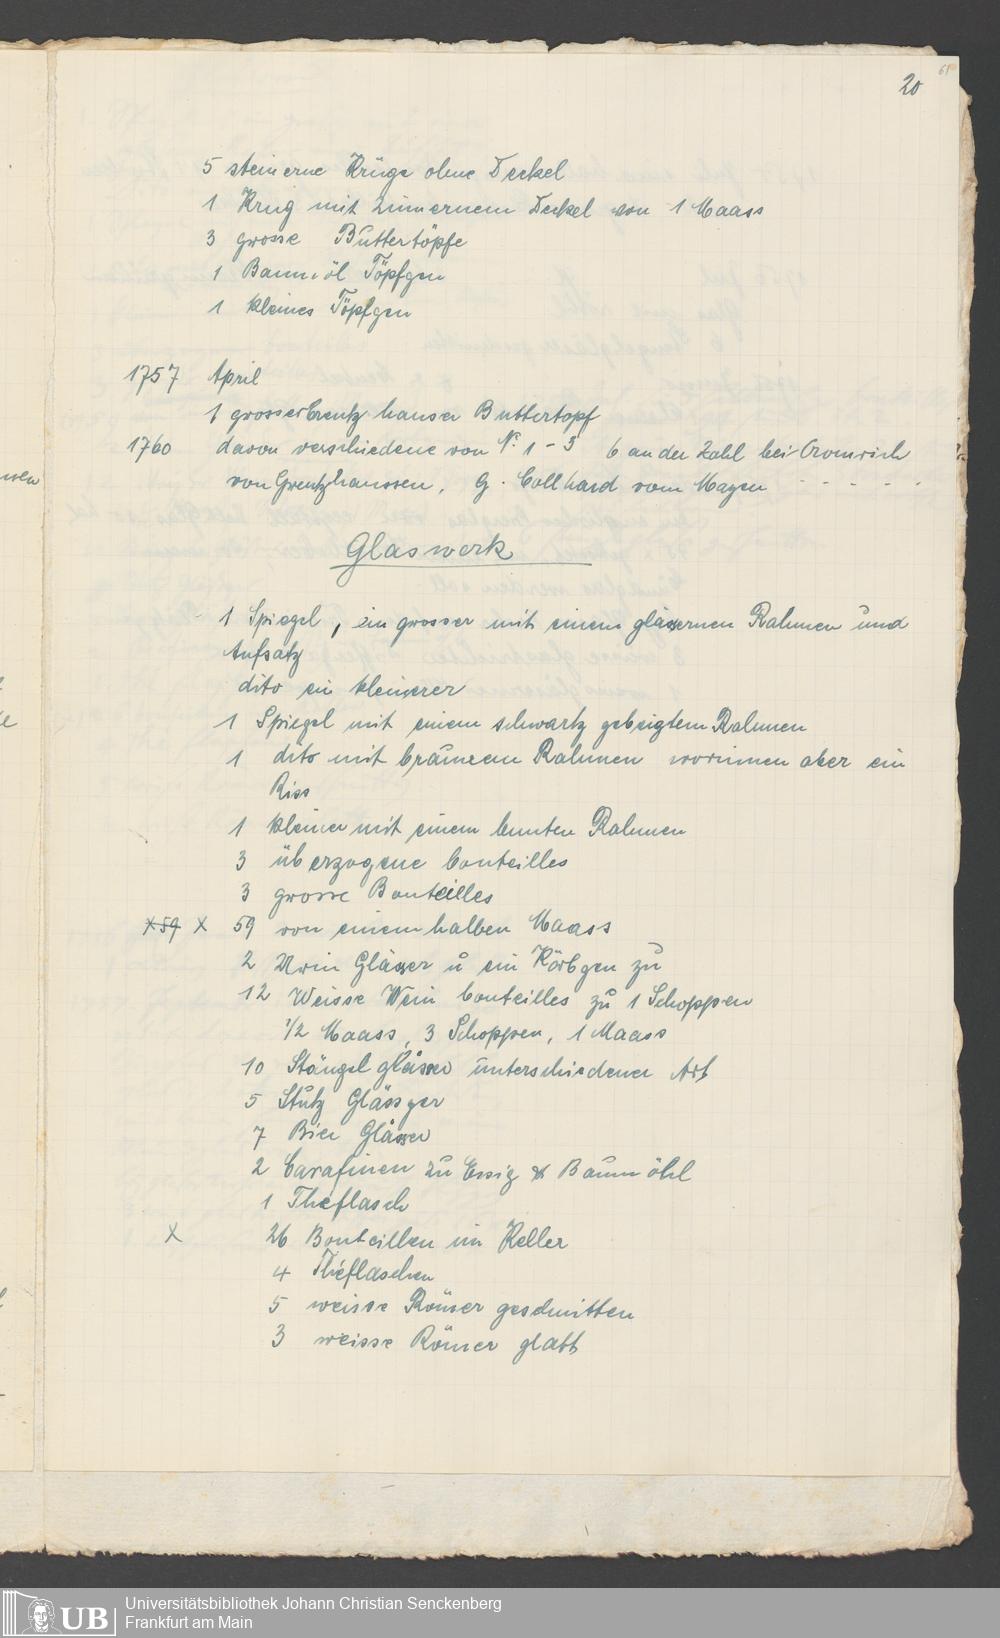 61
20
5 steinerne Krüge ohne Deckel
1 Krug mit zinnernem Deckel von 1 Maass
3 grosse Buttertöpfe
1 Baumöl Töpfgen
1 kleines Töpfgen
1757 April
1 grosser Creutzhauser Buttertopf
1760 davon verschiedene von No. 1-3 6 an der Zahl bei
von Greutzhaussen, G. Collhard vom Mayen - - - - -
Glaswerk
1 Spiegel, ein grosser mit einem gläsernen Rahmen und
Aufsatz
dito ein kleinerer
1 Spiegel mit einem schwartz gebeigtem Rahmen
1 dito mit braunem Rahmen worinnen aber ein
Riss
1 kleiner mit einem bunten Rahmen
3 überzogene bouteilles
3 grosse Bouteilles
x 59 x 59 von einem halben Maass
2 Urin Gläser u ein Körbgen zu
12 Weisse Wein bouteilles zu 1 Schoppen
1/2 Maass, 3 Schoppen, 1 Maass
10 Stängel gläser unterschiedener Art
5 Stutz Glässger
7 Bier Gläser
2 Carafinen zu Essig & Baumöhl
1 Théflasch
x 26 Bouteillen im Keller
4 Théflaschen
5 weisse Römer geschnitten
3 weisse Römer glatt
UB
Universitätsbibliothek Johann Christian Senckenberg
Frankfurt am Main